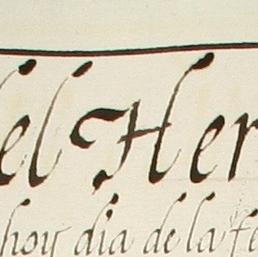 el Her
hoy dia de la fe